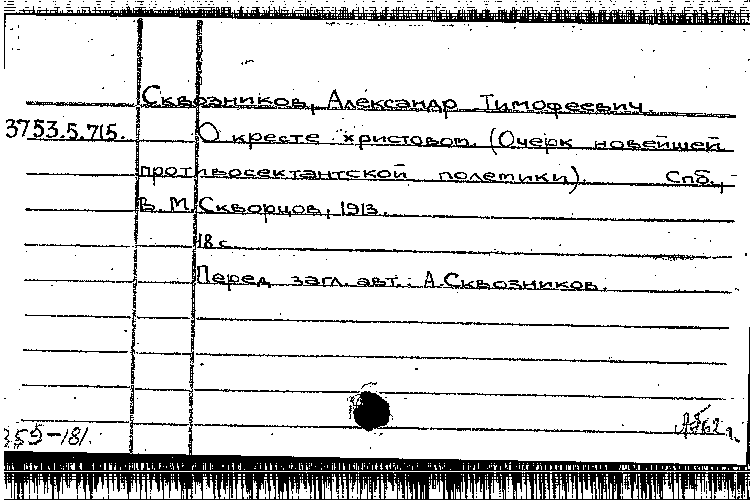 Сквозников, Александр Тимофеевич.
3753.5.715. О кресте христовом. (Очерк новейшей
противосектантской полемики). Спб.,
В. М. Скворцов, 1913.
18 с.
Перед загл. авт.: А. Сквозников.
359-181.